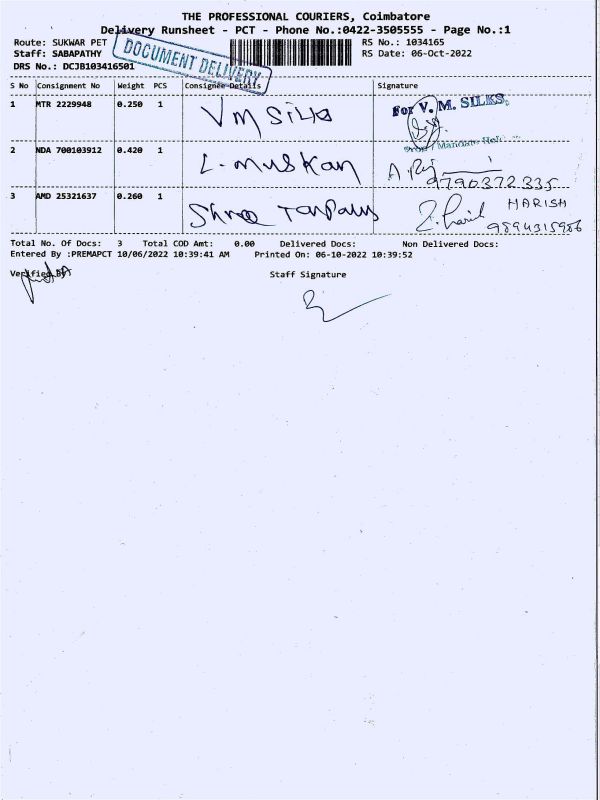 THE PROFESSIONAL COURIERS, Coimbatore
Delivery Runsheet - PCT - Phone No.:0422-3505555 - Page No.:1
Route: SUKWAR PET
RS No.: 1034165
Staff: SABAPATHY
RS Date: 06-Oct-2022
DRS No.: DCJB103416501
DOCUMENT DELIVERY
S No Consignment No Weight PCS Consignee Details Signature
1 MTR 2229948 0.250 1 VM Silks
For V. M. SILKS,
2 NDA 700103912 0.420 1 L-muskan
9790372335
3 AMD 25321637 0.260 1 Shree Tarpaus
HARISH
9894315986
Total No. Of Docs: 3 Total COD Amt: 0.00 Delivered Docs: Non Delivered Docs:
Entered By :PREMAPCT 10/06/2022 10:39:41 AM Printed On: 06-10-2022 10:39:52
Verified By
Staff Signature